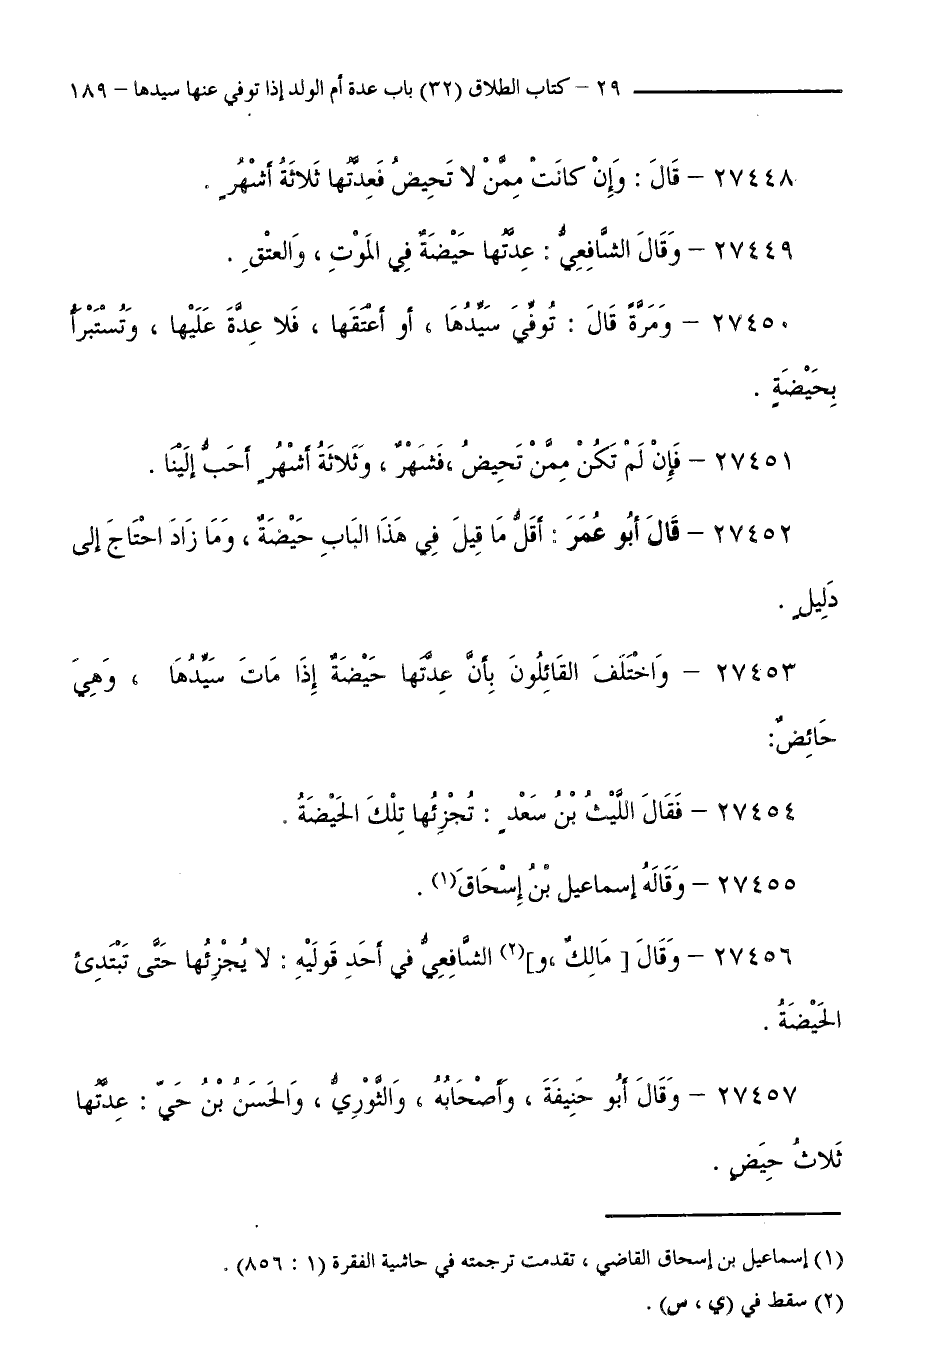 ٢٩ – كتاب الطلاق (٣٢) باب عدة أم الولد إذا توفي عنها سيدها – ١٨٩
٢٧٤٤٨ – قَالَ : وَإِنْ كانَتْ مِمَّنْ لا تَحِيضُ فَعِدَّتُها ثَلاثَةُ أشْهُرٍ .
٢٧٤٤٩ – وَقَالَ الشَّافِعِيُّ : عِدَّتُها حَيْضَةٌ فِي المَوْتِ ، وَالعتْقِ .
٢٧٤٥٠ – وَمَرَّةً قَالَ : تُوفِّيَ سَيِّدُهَا ، أو أعْتَقَها ، فَلا عِدَّةَ عَلَيْها ، وتُسْتَبْرَأُ
بِحَيْضَةٍ .
٢٧٤٥١ – فَإِنْ لَمْ تَكُنْ مِمَّنْ تَحِيضُ ،فَشهْرٌ ، وثَلاثَةُ أشْهُرٍ أحَبُّ إلَيْنَا .
٢٧٤٥٢ – قَالَ أبُو عُمَرَ : أقَلُّ مَا قِيلَ فِي هَذَا البَابِ حَيْضَةٌ ، وَمَا زَادَ احْتَاجَ إلى
دَلِيلٍ .
٢٧٤٥٣ – وَاخْتَلَفَ القَائِلُونَ بِأنَّ عِدَّتَها حَيْضَةٌ إِذَا مَاتَ سَيِّدُهَا ، وَهِيَ
حَائِضٌ:
٢٧٤٥٤ – فَقَالَ اللَّيْثُ بْنُ سَعْدٍ : تُجْزِئُها تِلْكَ الحَيْضَةُ .
٢٧٤٥٥ – وَقَالَهُ إسماعيل بْنُ إِسْحَاقَ(١) .
٢٧٤٥٦ – وَقَالَ [ مَالِكٌ ،و](٢) الشَّافِعِيُّ في أحَدِ قَولَيْهِ : لا يُجْزِئُها حَتَّى تَبْتَدِئَ
الحَيْضَةُ .
٢٧٤٥٧ – وَقَالَ أبُو حَنِيفَةَ ، وَأصْحَابُهُ ، وَالثَّوْرِيُّ ، وَالحَسَنُ بْنُ حَيّ : عِدَّتُها
ثَلاثُ حِيَضٍ .
(١) إسماعيل بن إسحاق القاضي ، تقدمت ترجمته في حاشية الفقرة (١ : ٨٥٦) .
(٢) سقط في (ي ، س) .